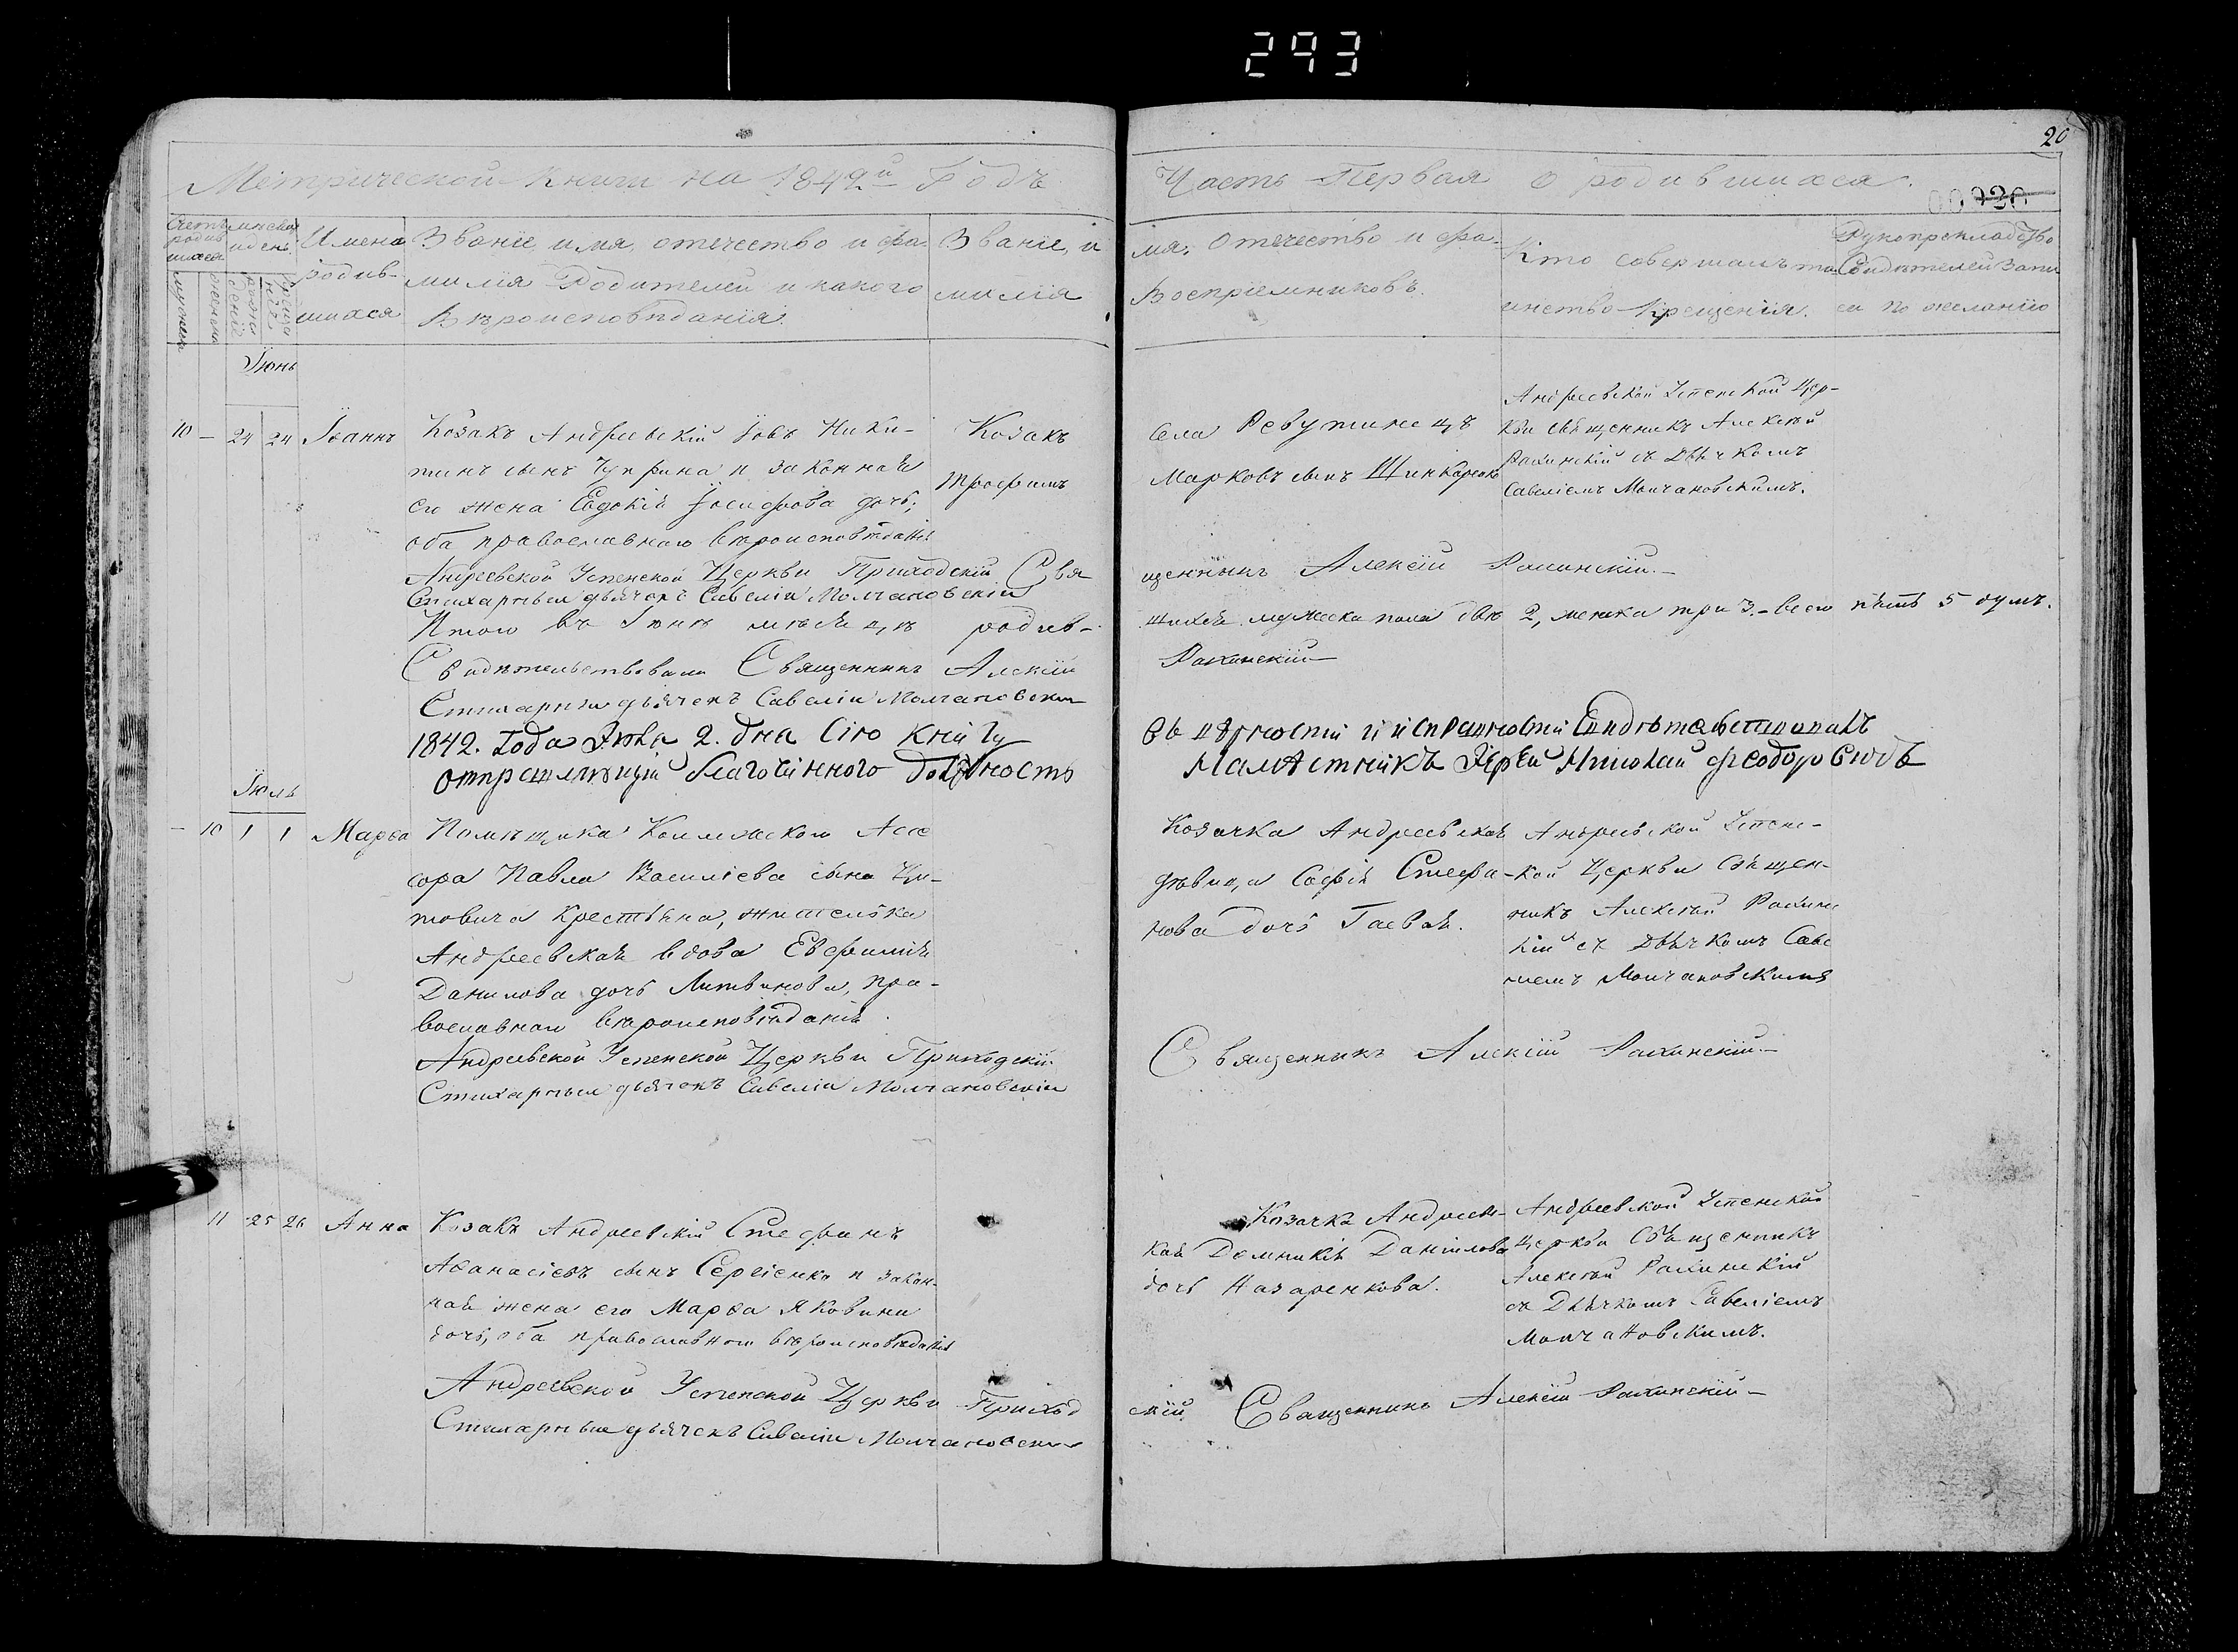 293
20
Метрической Книги на 1842й Годъ
Часть Первая о родившихся.
00920
Счетъ родившихся
мужеска
женска
Имена родив-
шихся
Званіе, имя, отечество и фа-
милія Родителей и какого
Вѣроисповѣданія.
Званіе, и
милія
мя, отечество и фа-
Воспріемниковъ.
Кто совершалъ та-
инство Крещенія.
Рукоприкладство
Свидѣтелей запи
си по желанію
Іюнь
10 – 24 24 Іоаннъ
Козакъ Андреевскій Іовъ Ники-
тинъ сынъ Чуприна и законная
его жена Евдокія Іосифова дочь;
оба православнаго вѣроисповѣданія
Козакъ
Трофимъ
села Ревутинецъ
Марковъ сынъ Шинкаренко
Андреевской Успенской Цер-
кви священникъ Алексѣй
Рахинскій съ Дьячкомъ
Савеліемъ Молчановскимъ.
Андреевской Успенской Церкви Приходскій Свя
щенникъ Алексій Рахинскій.–
Стихарный дьячекъ Савелій Молчановскій
Итого въ Іюнѣ мѣсяцѣ родив-
шихся мужеска пола два 2, женска три 3.– всего пять 5 душъ.
Свидѣтельствовали Священникъ Алексій
Рахинскій–
Стихарный дьячекъ Савелій Молчановскій
1842. Года Іюля 2. дня Сію книгу
въ вѣрности и исправности Свидѣтельствовалъ
отправляющій благочинного должность
Намѣстникъ Іерей Николай Феодоровъ
Іюль
– 10 1 1 Марѳа
Помѣщика Коллежского Ассе
сора Павла Василіева сына
товича Крестьяна, жителька
Андреевская вдова Евфимія
Данилова дочь Литвинова, пра-
вославнаго вѣроисповѣданія.
Козачка Андреевская
дѣвица Софія Стефа-
нова дочь Гаевая.
Андреевской Успенс-
кой Церкви Священ-
никъ Алексѣй Рахинс
кій съ Дьячкомъ Саве
ліемъ Молчановскимъ
Андреевской Успенской Церкви Приходскій
Священникъ Алексій Рахинскій.–
Стихарный дьячекъ Савелій Молчановскій
11 25 26 Анна
Козакъ Андреевскій Стефанъ
Аѳанасіевъ сынъ Сергіенко и закон-
ная жена его Марѳа Яковина
дочь, оба православнаго вѣроисповѣданія
Козачка Андреевс-
кая Домникія Данілова
дочь Назаренкова.
Андреевской Успенской
Церкви Священникъ
Алексѣй Рахинскій
съ Дьячкомъ Савеліемъ
Молчановскимъ.
Андреевской Успенской Церкви Приход
скій Священникъ Алексій Рахинскій–
Стихарный дьячекъ Савелій Молчановскій